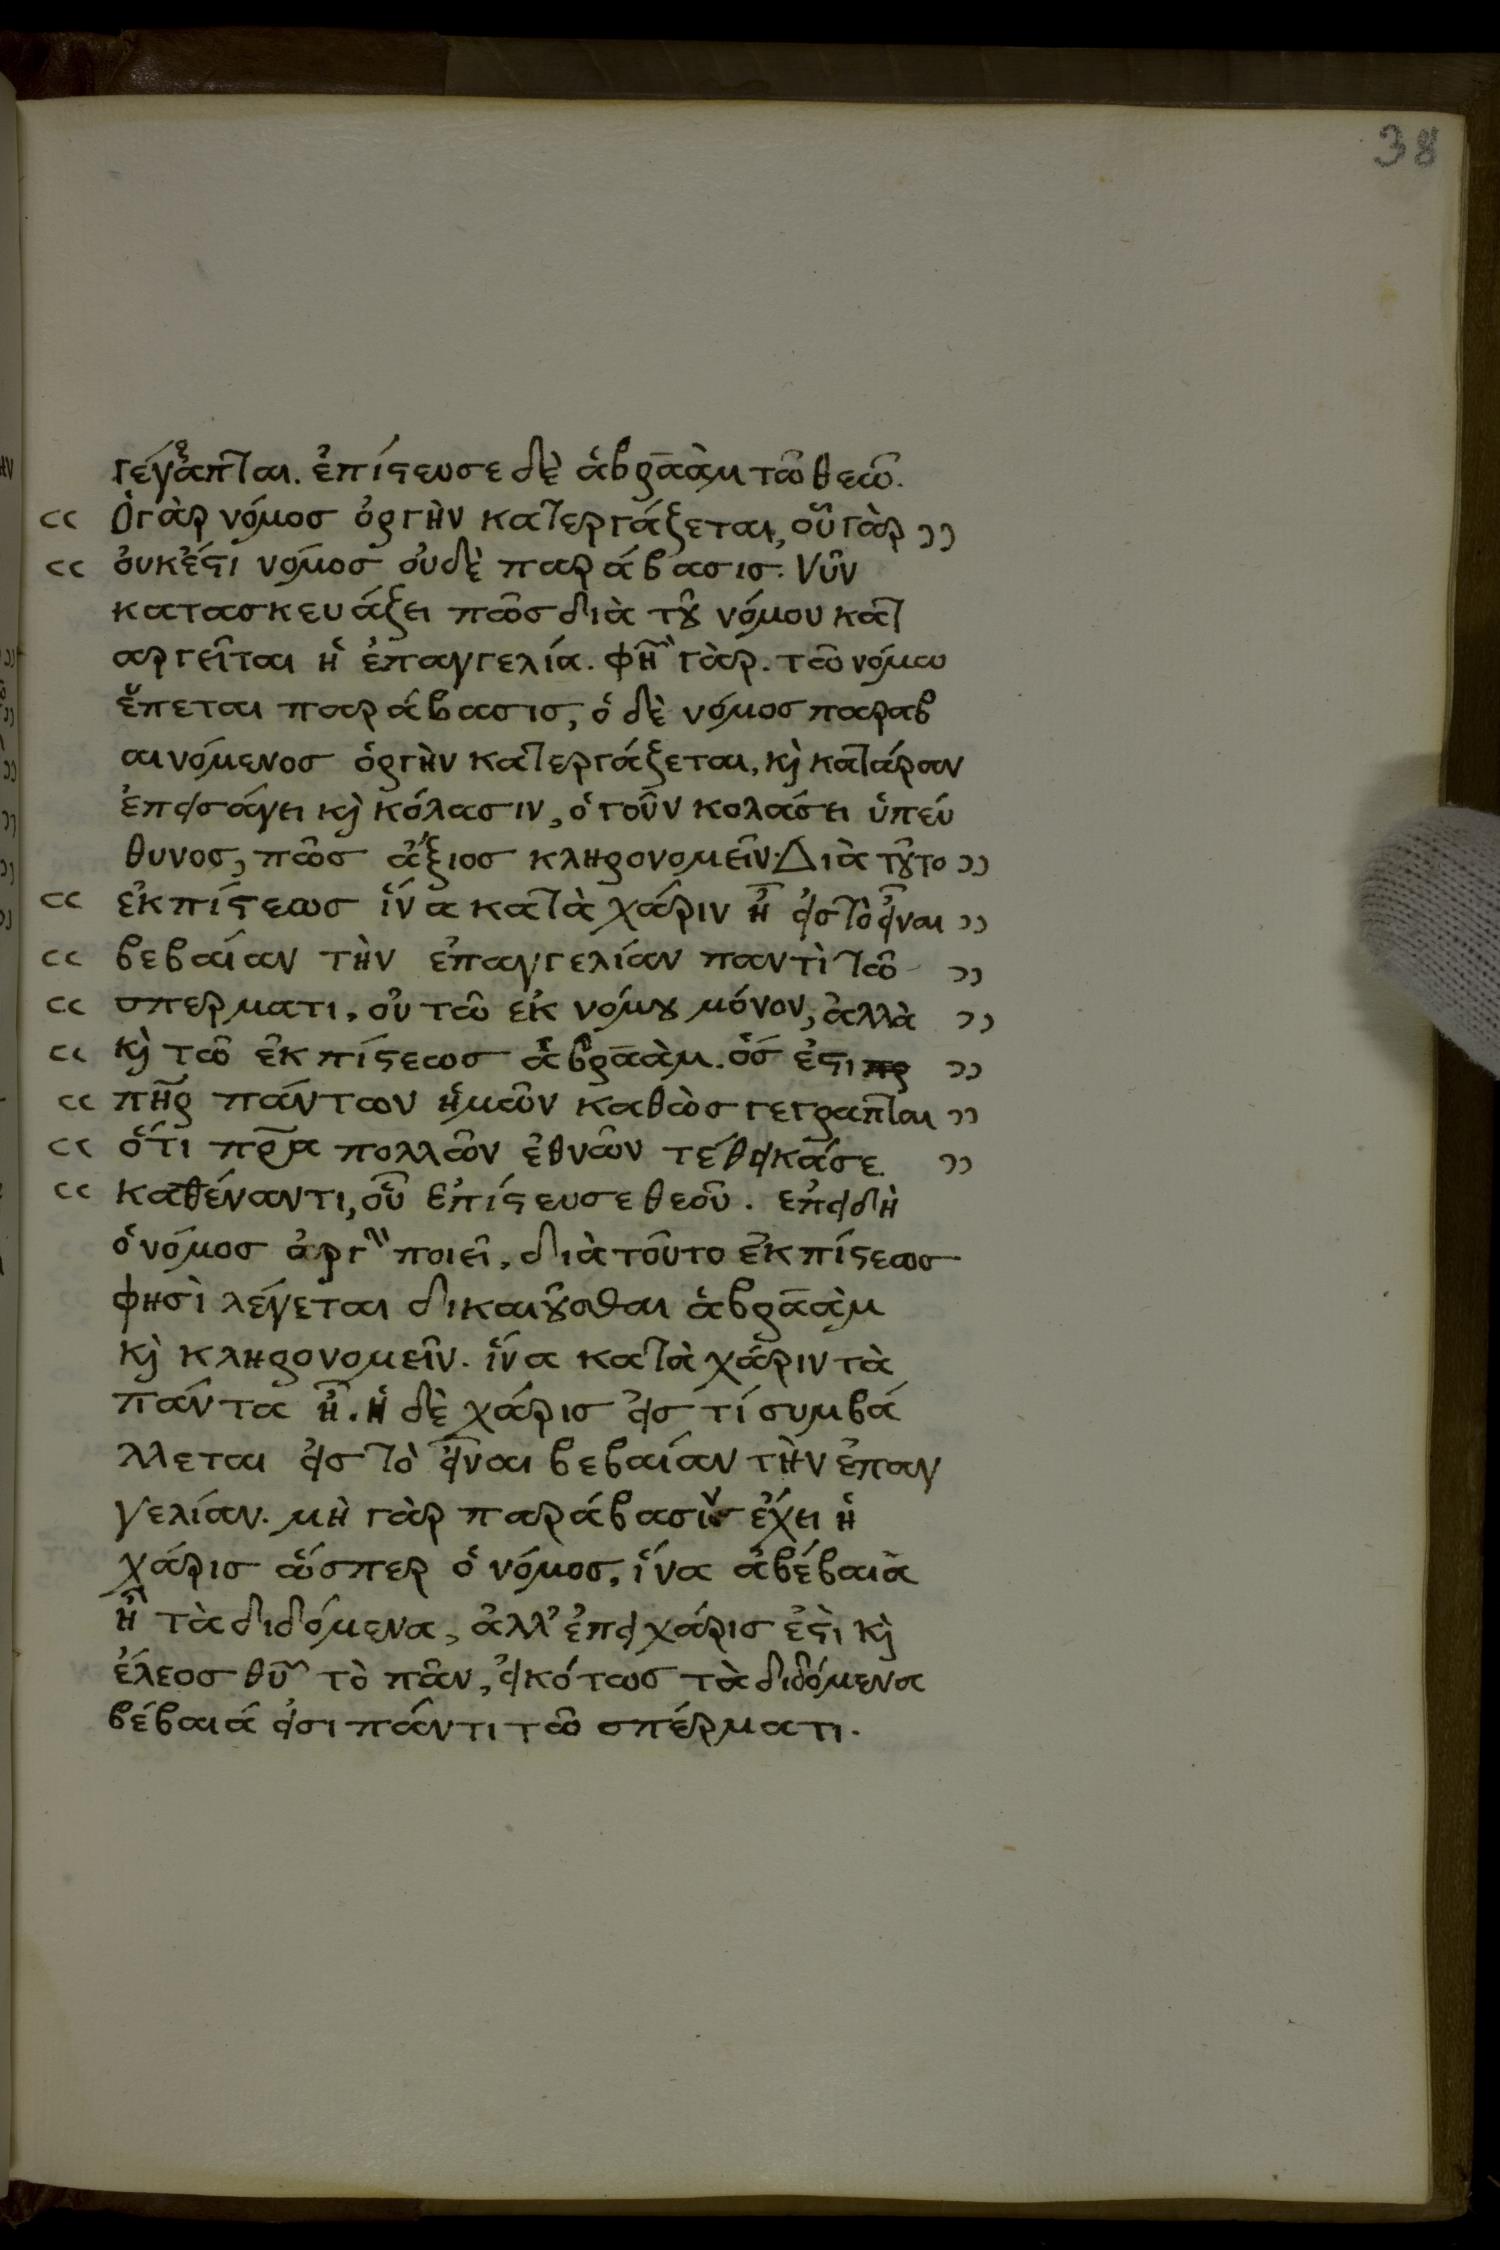 38
γέγραπται. ἐπίστευσε δὲ ἀβραὰμ τῶ θεῶ.
Ὁ γὰρ νόμοσ ὀργὴν κατεργάζεται, οὗ γὰρ
οὐκέστι νόμοσ οὐδὲ παράβασισ. Νῦν
κατασκευάζει πῶσ διὰ τοῦ νόμου κατ
αργεῖται ἡ ἐπαγγελία. φησὶ γὰρ. τῶ νόμω
ἕπεται παράβασισ, ὁ δὲ νόμοσ παραβ
αινόμενοσ ὀργὴν κατεργάζεται, καὶ κατάραν
ἐπεισάγει καὶ κόλασιν, ὁ γοῦν κολάσει ὑπεύ
θυνοσ, πῶσ ἄξιοσ κληρονομεῖν. Διὰ τοῦτο
ἐκ πίστεωσ ἵνα κατὰ χάριν ἦ εἰσ τὸ εἶναι
βεβαίαν τὴν ἐπαγγελίαν παντὶ τῶ
σπερματι, οὐ τῶ εκ νόμου μόνον, ἀλλὰ
καὶ τῶ ἐκ πίστεωσ ἀβραὰμ. ὅσ ἐστι πρ
πηρ πάντων ἡμῶν καθὼσ γεγραπται
ὅτι πρα πολλῶν ἐθνῶν τέθεικά σε.
κατέναντι, οὗ ἐπίστευσε θεοῦ. επειδὴ
ὁ νόμοσ ἀργ ποιεῖ, διὰ τοῦτο ἐκ πίστεωσ
φησὶ λέγεται δικαιοῦσθαι ἀβραὰμ
καὶ κληρονομεῖν. ἵνα κατὰ χάριν τὰ
πάντα ἦ. ἡ δὲ χάρισ εἰσ τί συμβά
λλεται εἰσ τὸ εἶναι βεβαίαν τὴν ἐπαγ
γελίαν. μὴ γὰρ παράβασιν ἔχει ἡ
χάρισ ὥσπερ ὁ νόμοσ, ἵνα ἀβέβαια
ἦ τὰ διδόμενα, ἀλλ' ἐπεὶ χάρισ ἐστὶ καὶ
έλεοσ θυ τὸ πᾶν, εἰκότωσ τὰ διδόμενα
βέβαιά εἰσι πάντι τῶ σπέρματι.